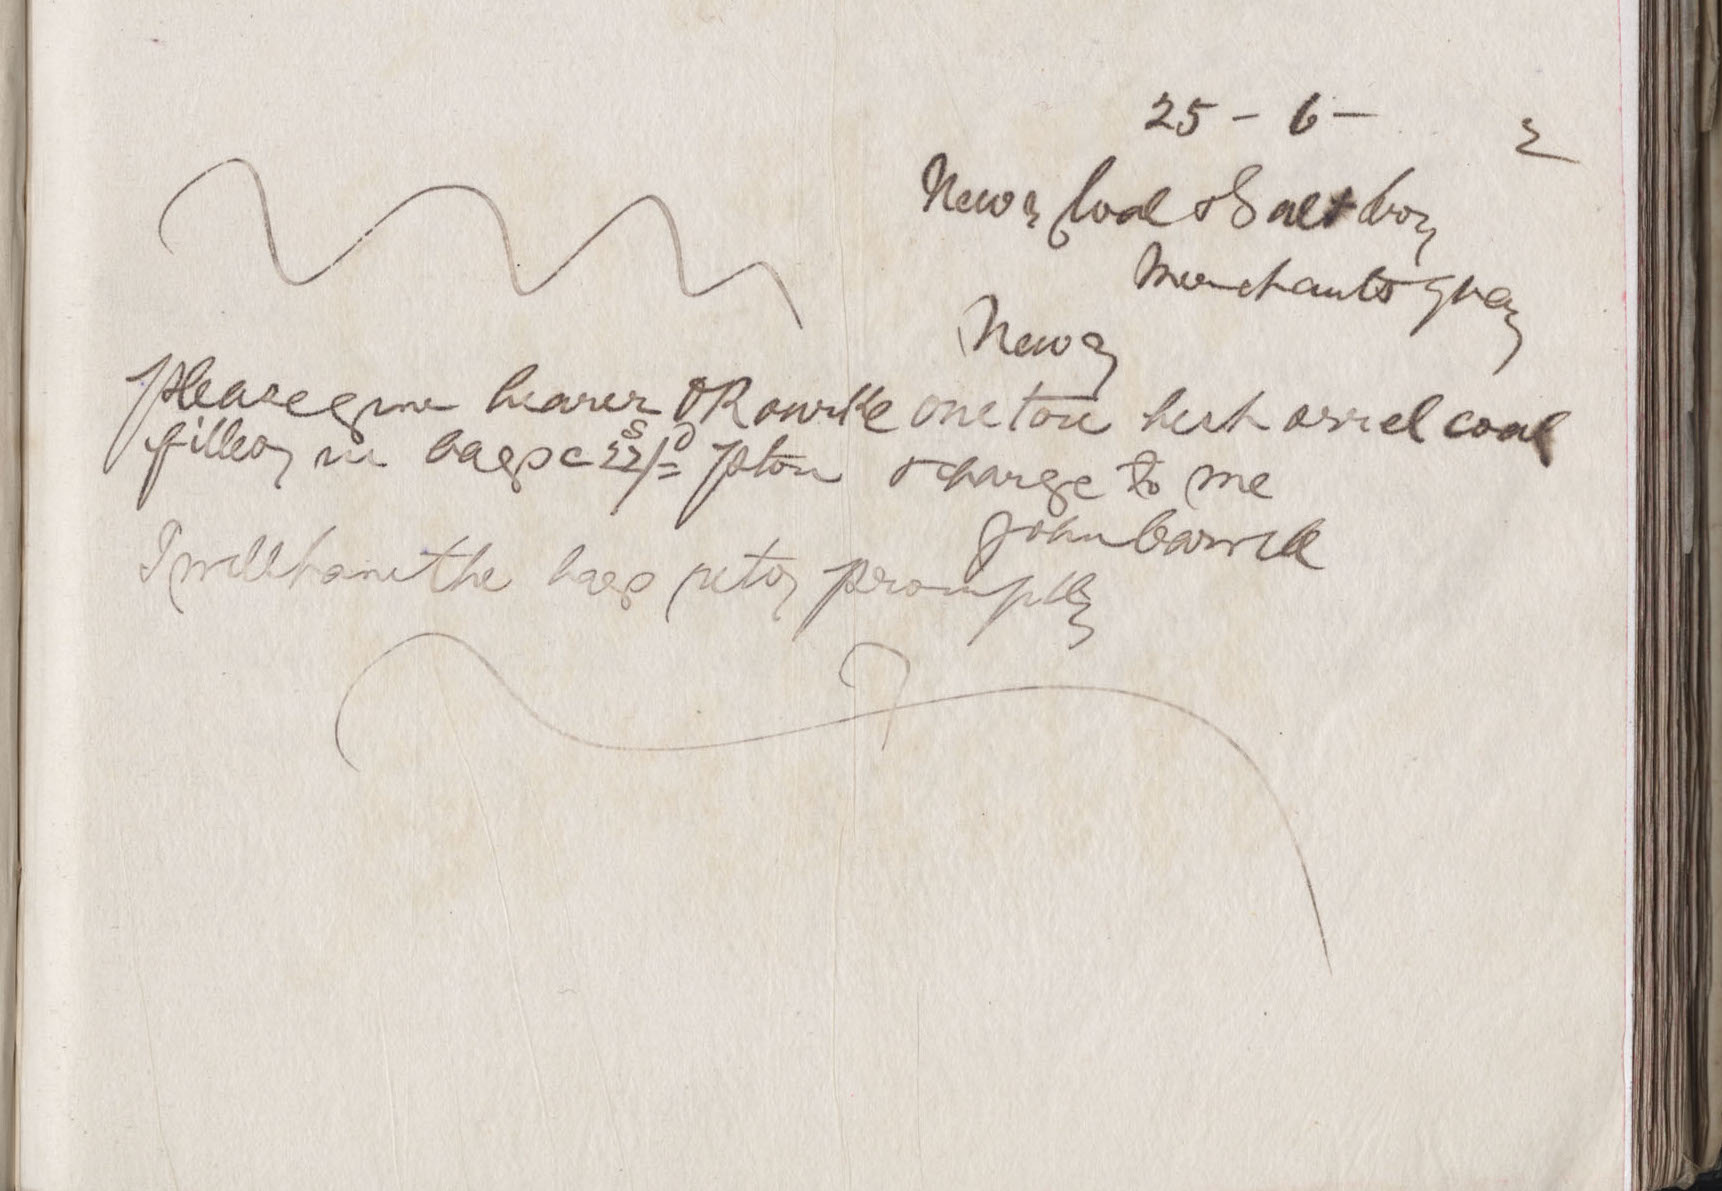 25 - 6 - 2
Newry Coal & Salt Coy
Merchants Quay
Newry
Please give bearer O Rourke one ton best orrel coal
filled in bags @ 22s/=d p ton & charge to me
John Carrick
I will have the bags retd promptly